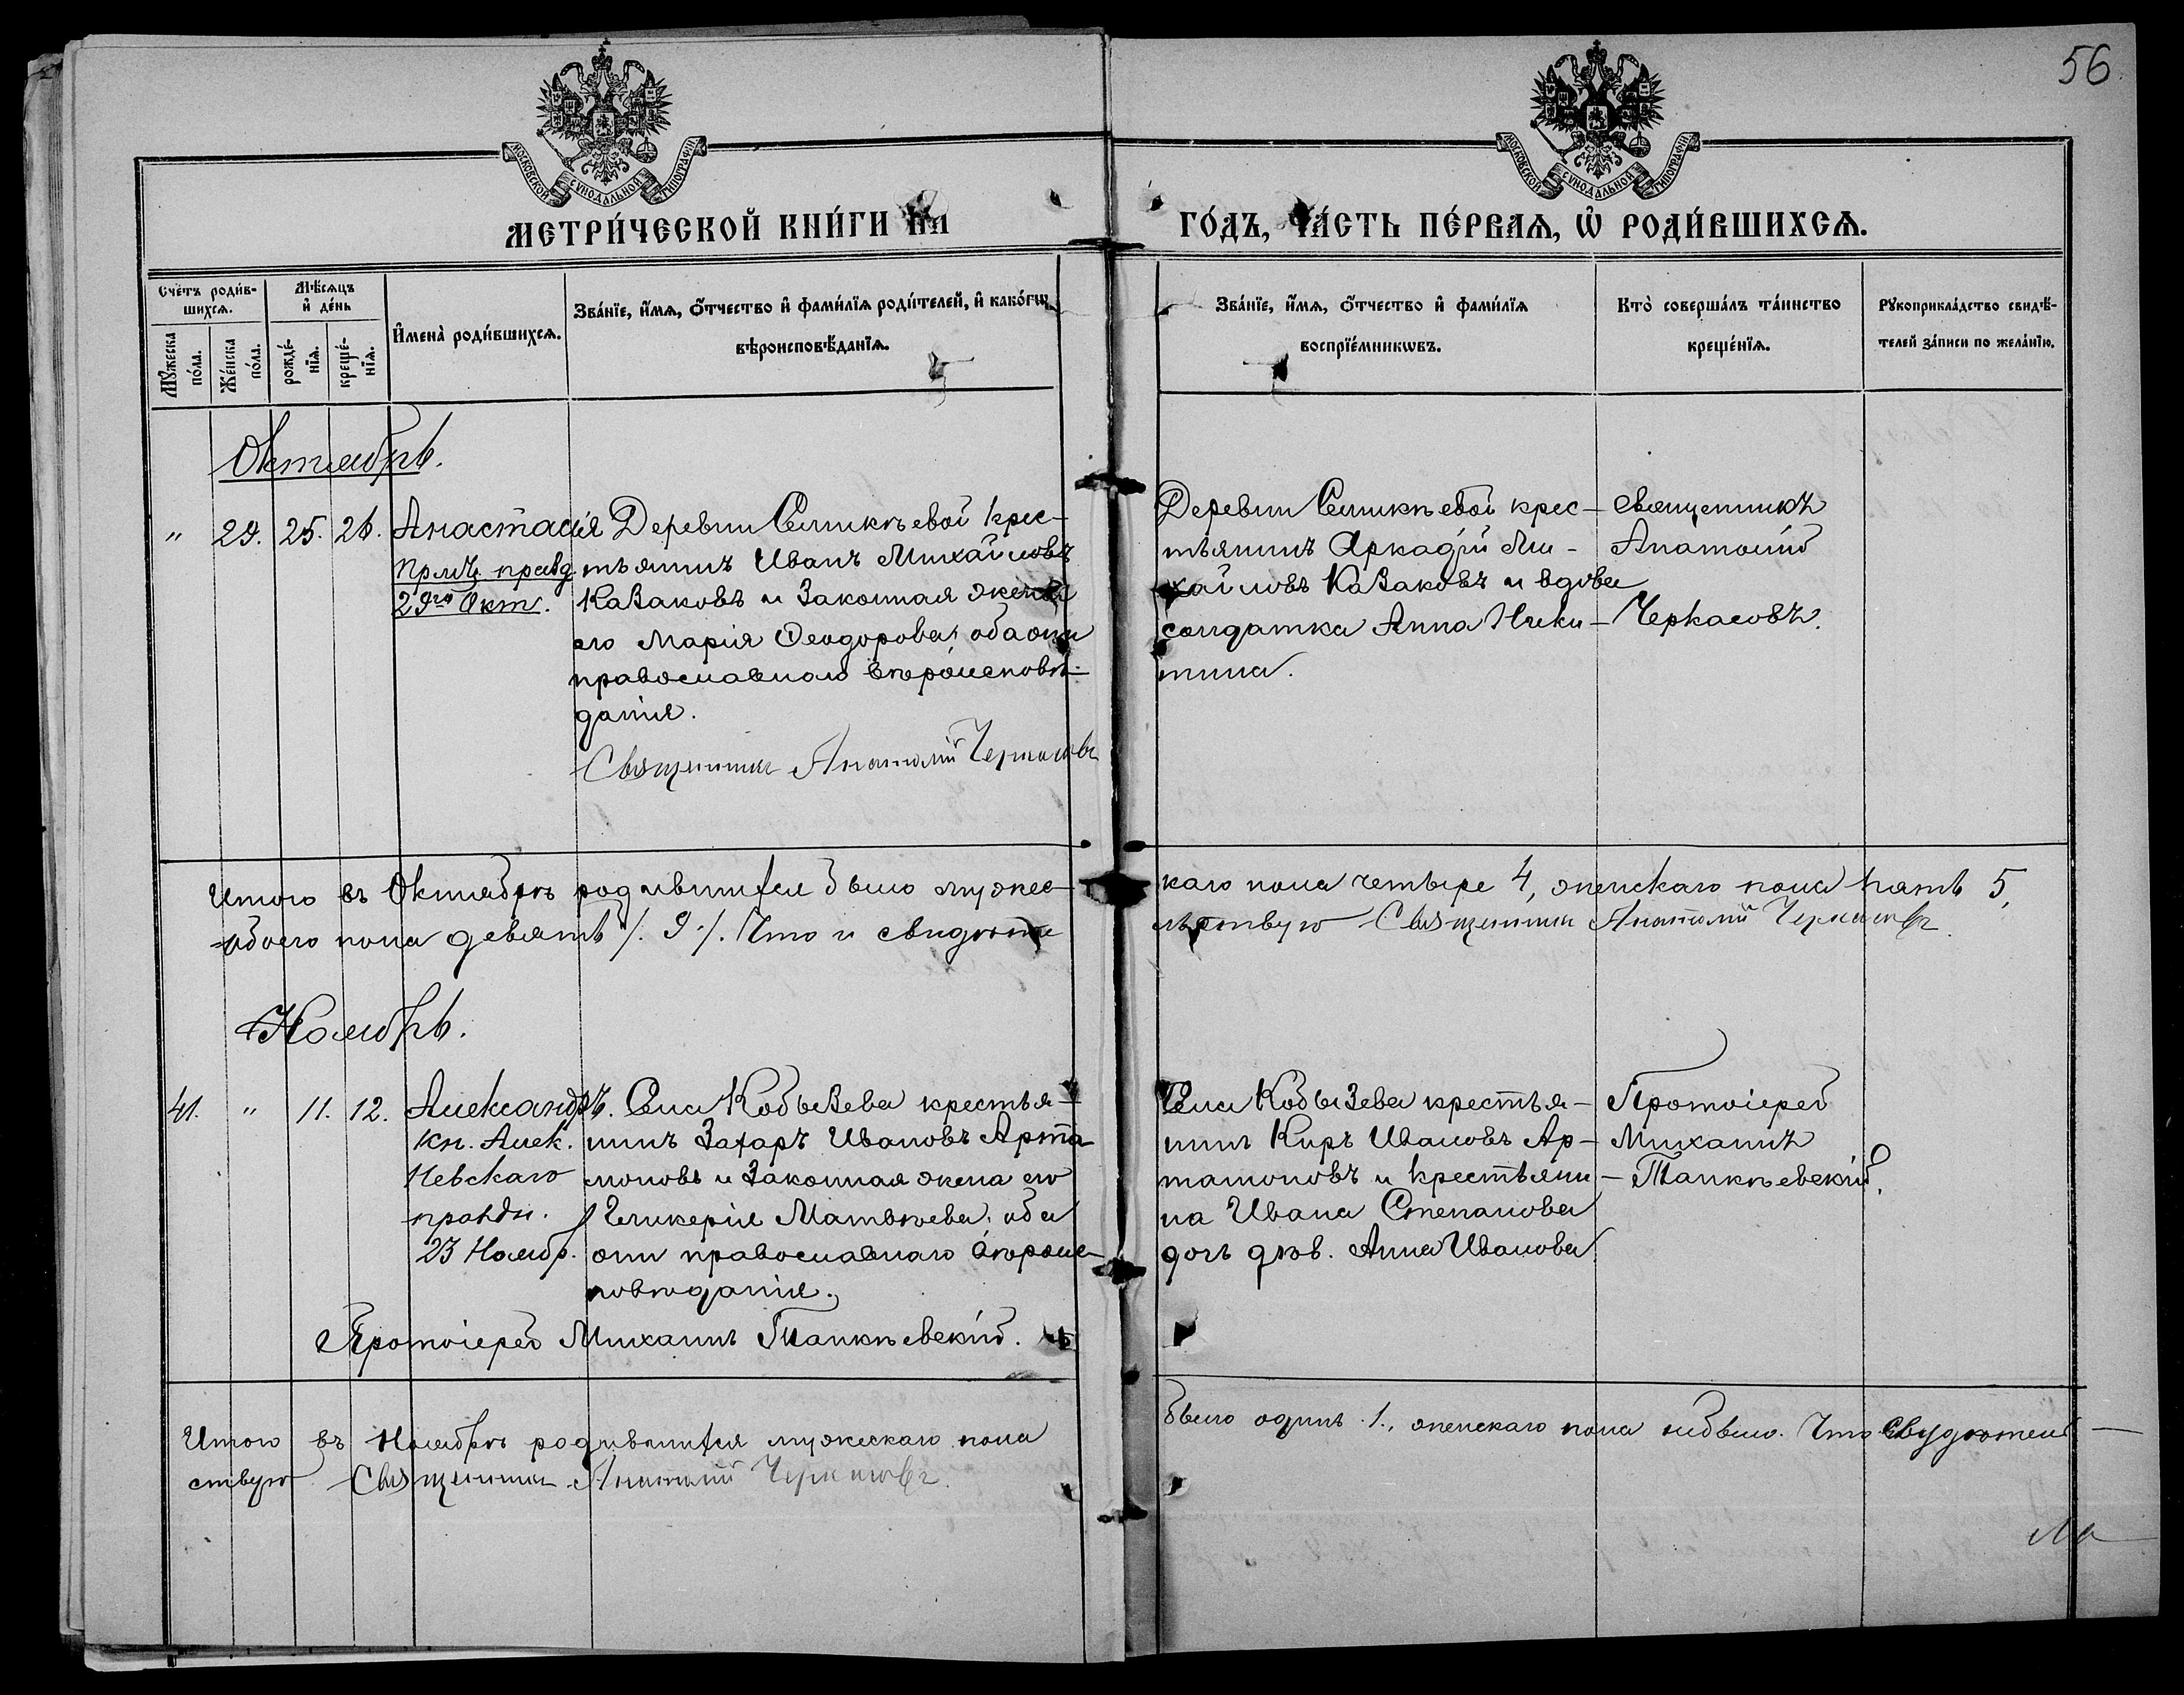 56
МОСКОВСКОЙ СУНОДАЛЬНОЙ ТИПОГРАФІИ
МОСКОВСКОЙ СУНОДАЛЬНОЙ ТИПОГРАФІИ
МЕТРИ́ЧЕСКОЙ КНИ́ГИ НА
ГО́ДЪ, ЧА́СТЬ ПЕ́РВАѦ, Ѡ҆ РОДИ́ВШИХСѦ.
Счётъ роди́в-
шихсѧ.
Мꙋ́жеска
по́ла.
Же́нска
по́ла.
Мѣ́сѧцъ
и҆ де́нь
рожде́-
нїѧ.
креще́-
нїѧ.
И҆мена̀ роди́вшихсѧ.
Зва́нїе, и҆́мѧ, ѻ҆́тчество и҆ фами́лїѧ роди́телей, и҆ како́гѡ
вѣроисповѣ́данїѧ.
Зва́нїе, и҆́мѧ, ѻ҆́тчество и҆ фами́лїѧ
воспрїе́мникѡвъ.
Кто̀ соверша́лъ та́инство
креще́нїѧ.
Рꙋкоприкла́дство свидѣ́-
телей за́писи по жела́нїю.
Октябрь.
" 29. 25. 26. Анастасія
29го Окт.
Деревни Селикѣевой крес-
тьянинъ Иванъ Михайловъ
Казаковъ и законная жена
его Марія Ѳеодорова, оба они
православнаго вѣроисповѣ-
данія.
Священникъ Анатолій Черкасовъ
Деревни Селикѣевой крес-
тьянинъ Аркадій Ми-
хайловъ Казаковъ и вдова
солдатка Анна Ники-
тина.
Священникъ
Анатолій
Черкасовъ.
Итого въ Октябрѣ родившихся было мужес-
каго пола четыре 4, женскаго пола пять 5,
обоего пола девять /. 9 /. Что и свидѣте
льствую Священникъ Анатолій Черкасовъ.
Ноябрь.
41. " 11. 12. Александръ.
Кн. Алек.
Невскаго
праздн.
23 Ноябр.
Села Кобызева крестья-
нинъ Захаръ Ивановъ Арта
моновъ и законная жена его
Гликерія Матвѣева, оба
они православнаго вѣроис-
повѣданія.
Протоіерей Михаилъ Талкѣевскій.
Села Кобызева крестья-
нинъ Киръ Ивановъ Ар-
тамоновъ и крестьяни-
на Ивана Степанова
дочь дѣв. Анна Иванова.
Протоіерей
Михаилъ
Талкѣевскій.
Итого въ Ноябрѣ родившихся мужескаго пола
было одинъ .1., женскаго пола небыло. Что свидѣтель-
ствую Священникъ Анатолій Черкасовъ.